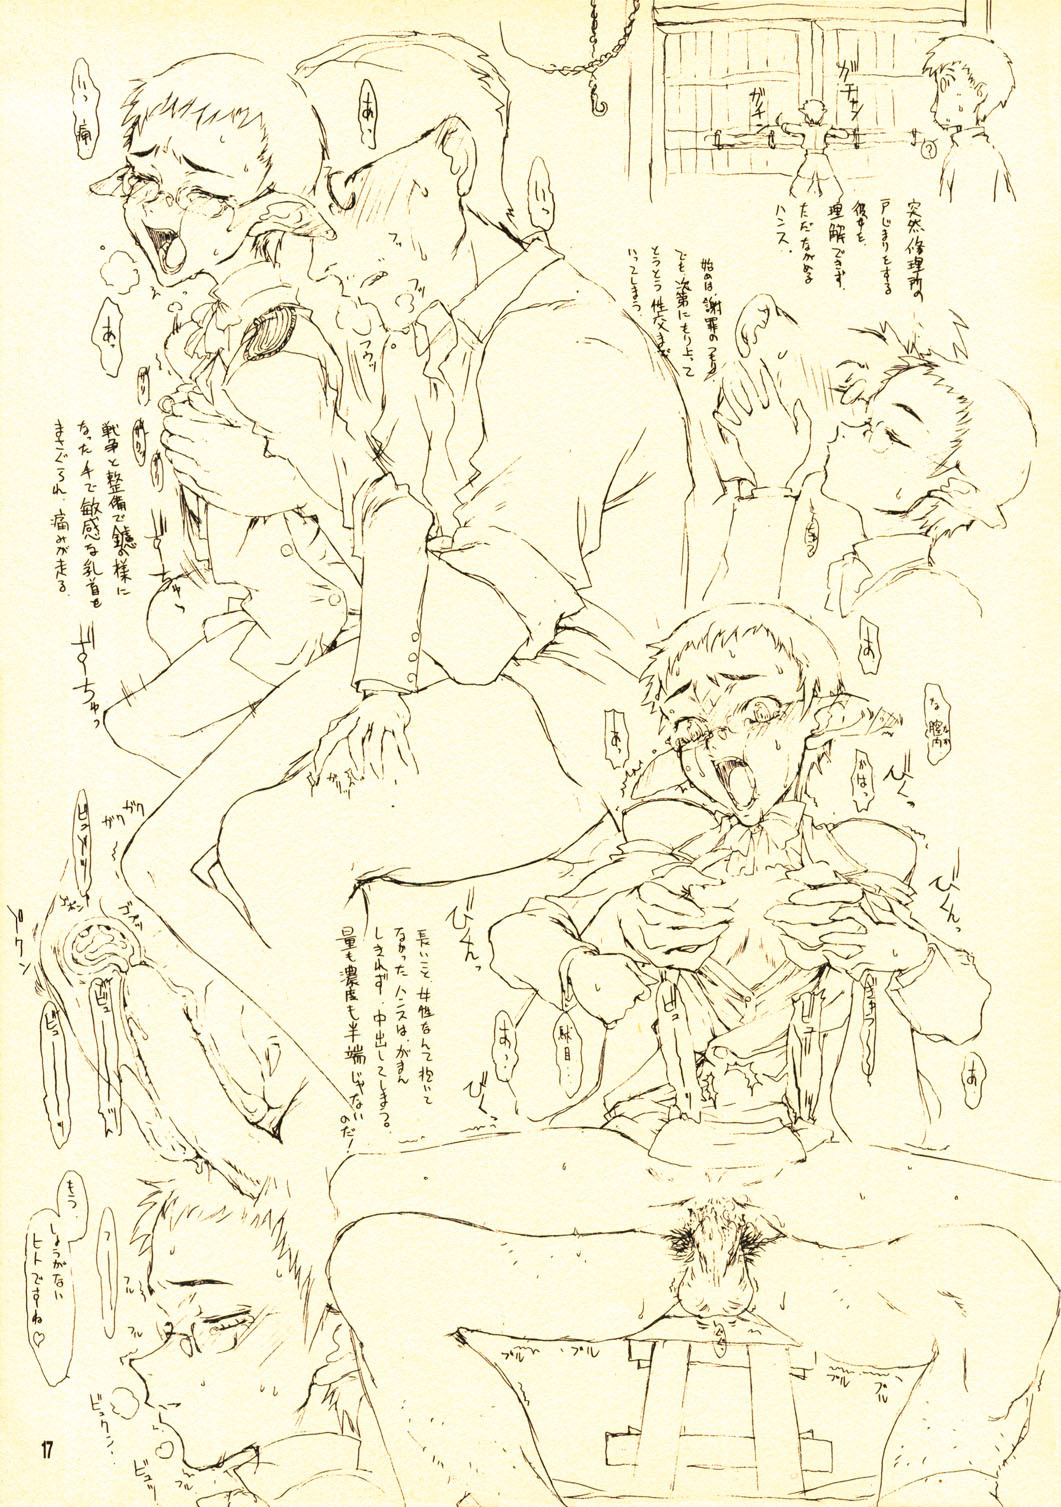 ガチャン
ガチン
?
突然修理所の
戸じまりをする
彼女を
理解できず、
ただながめる
ハンス.
始めは、謝罪のつもり
でも、次第にもり上って
とうとう性交まで
いってしまう。
いっ
あっ
いっ
痛
あっ
フッ
フッ
フウッ
戦争と整備で鑢の様に
なった手で敏感な乳首を
まさぐられ、痛みが走る.
ガリッ
あ
な
膣内
かはっ
あっ
びくっ
びくんっ
びくんっ
びくっ
あっ…
駄目…
あ
ビュ
長いこと女性なんて抱いて
なかったハンスは、がまん
しきれず、中出ししてしまう。
量も濃度も半端じゃない
のだ!
ガクガク
ゴポッ
ビュ
ビュ
もう、
しょうがない
ヒトですね♡
フル
フル
ビュクン…
ビュッ
プル
プル
プル
プル
17